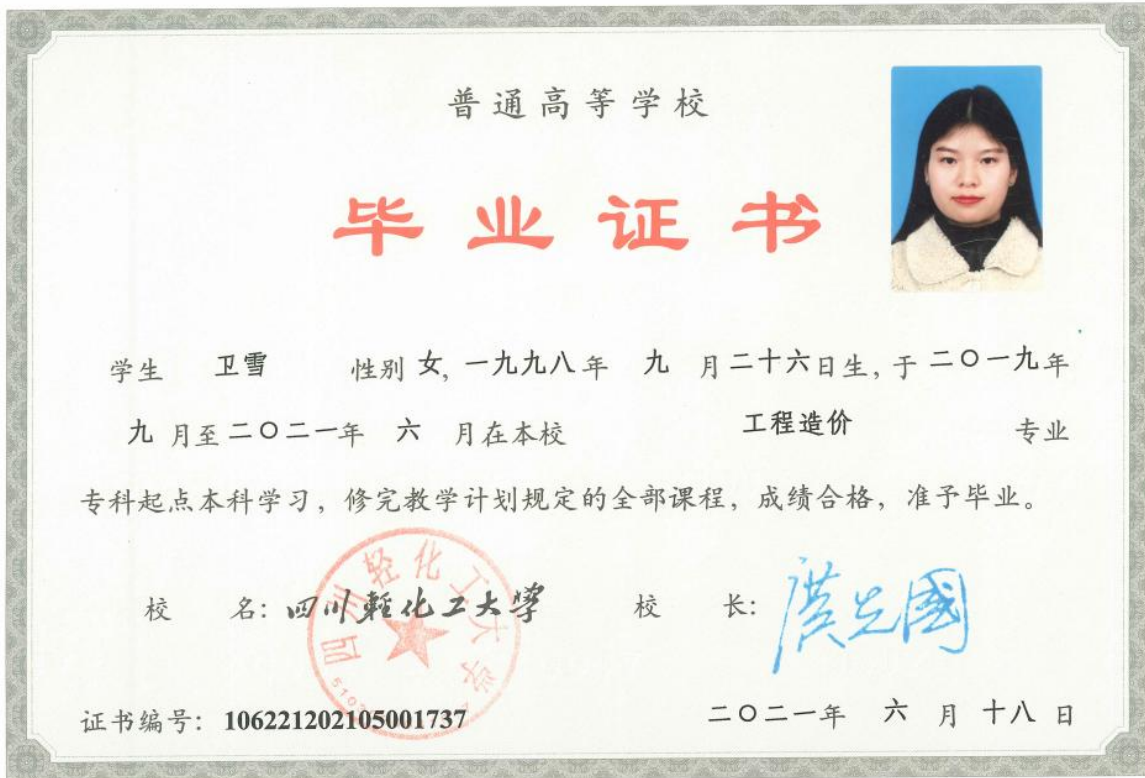 普通高等学校
毕业证书
学生 卫雪 性别 女, 一九九八年 九 月二十六日生, 于二〇一九年
九 月至二〇二一年 六 月在本校 工程造价 专业
专科起点本科学习, 修完教学计划规定的全部课程, 成绩合格, 准予毕业。
校 名: 四川轻化工大学 校 长:
四川轻化工大学
证书编号: 106221202105001737 二〇二一年 六 月 十八 日